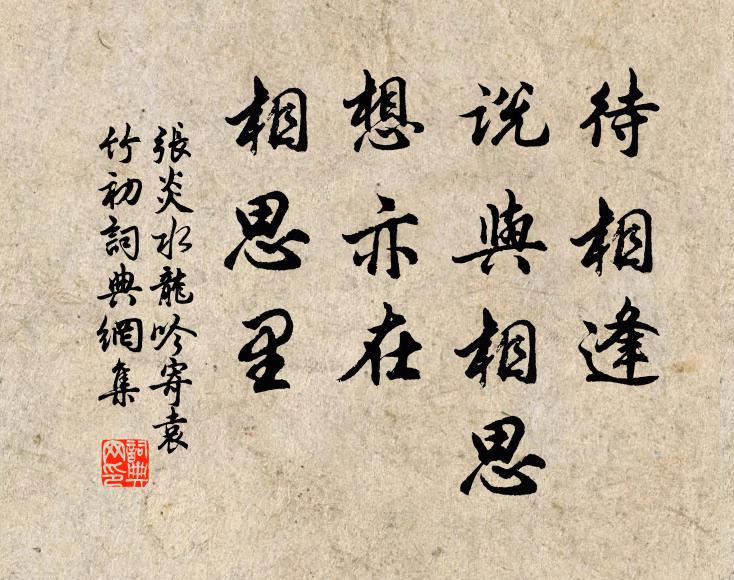 待相逢
説與相思
想亦在
相思里
張炎水龍吟寄袁
竹初詞典網集
詞典
网印